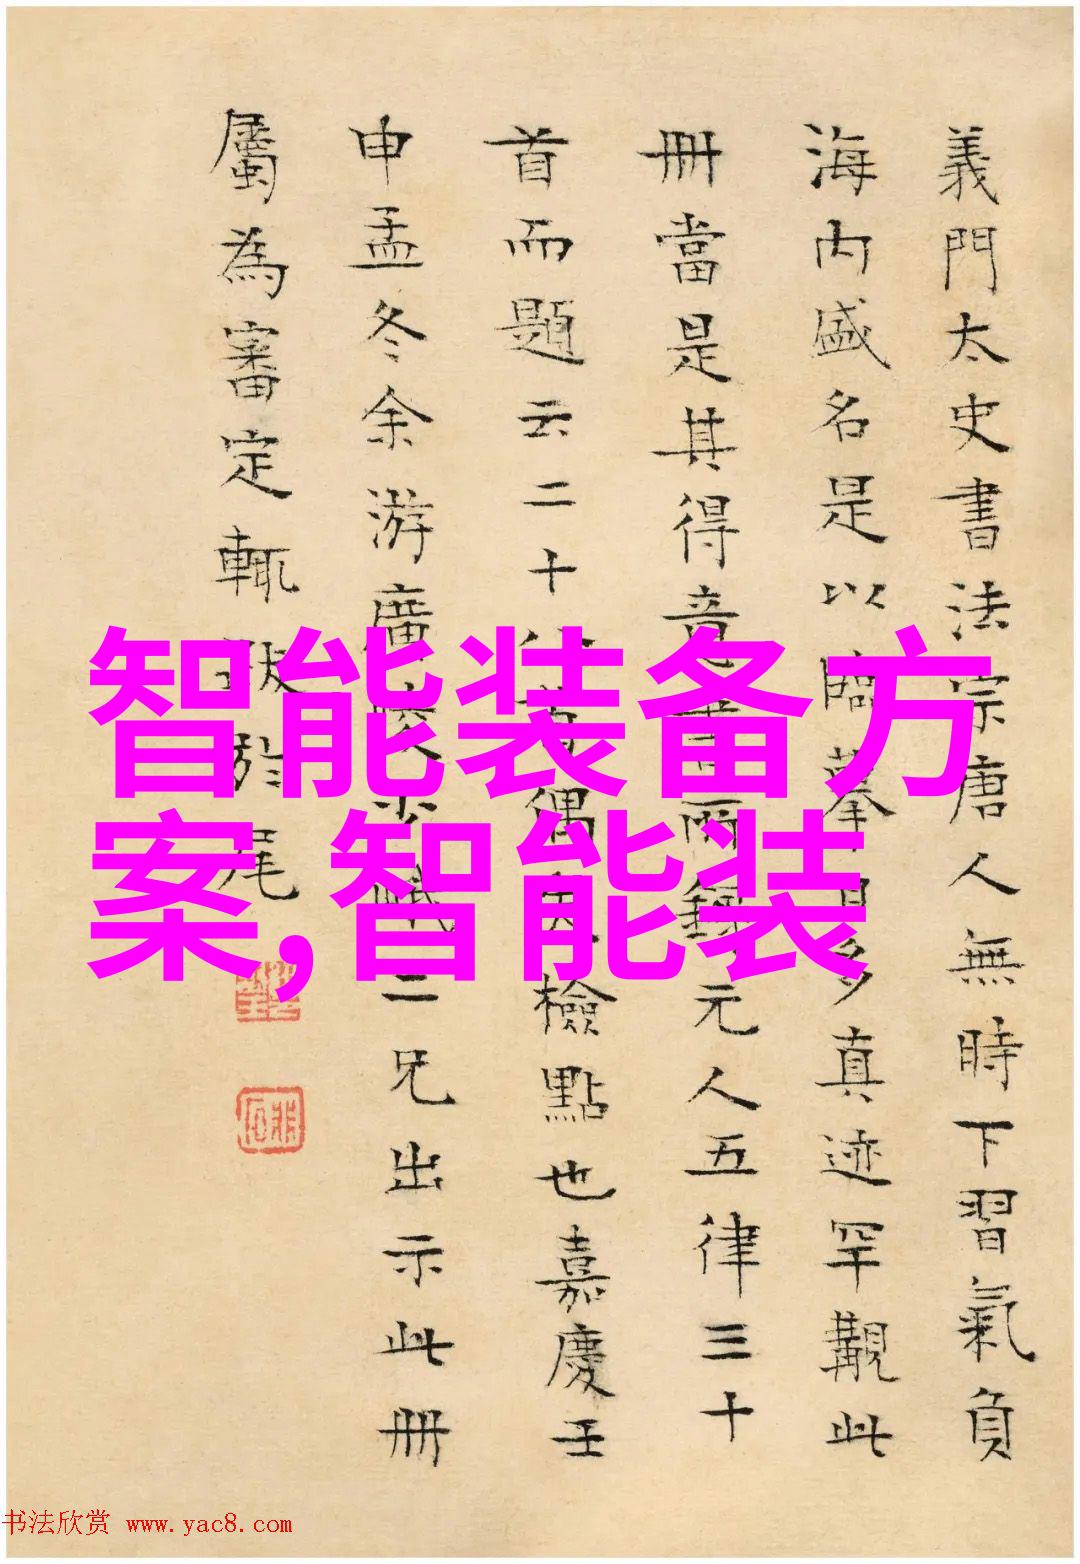 義門太史書法宗唐人無時下習氣負
海内盛名是以臨摹日多真迹罕覯此
冊當是其得意
兩錄元人五律三十
首而題云二十八
偶失檢點也嘉慶壬
申孟冬余游廣陵
二兄出示此冊
屬為審定輒跋於尾
智能装备方
案,智能装
书法欣赏 www.yac8.com